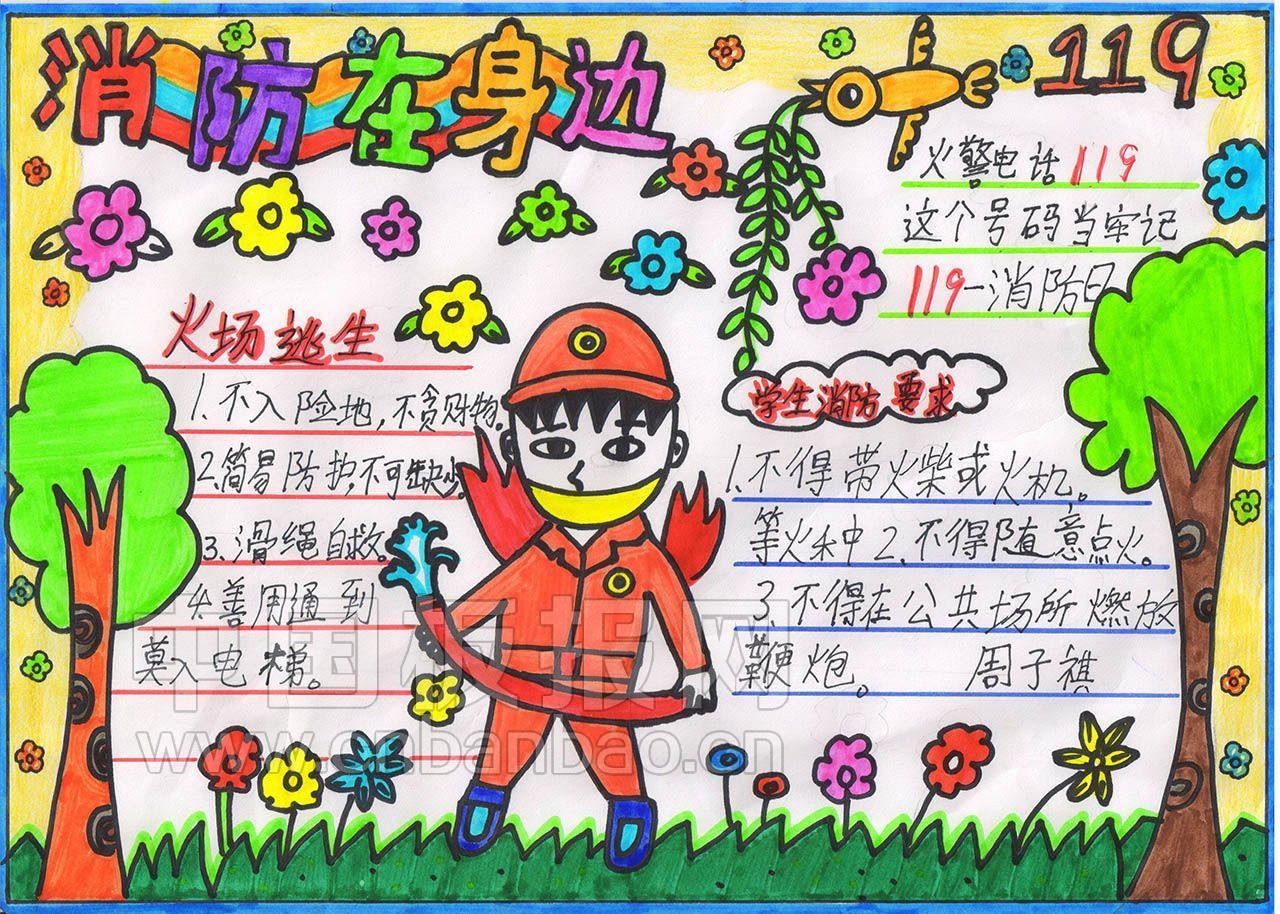 消防在身边
119
火警电话119
这个号码当牢记
119—消防日
火场逃生
1.不入险地,不贪财物。
2.简易防护,不可缺少。
3.滑绳自救。
4.善用通到
莫入电梯。
学生消防要求
1.不得带火柴或火机。
等火种中2.不得随意点火。
3.不得在公共场所燃放
鞭炮。 周子祺
中国板报网
www.cnbanbao.cn